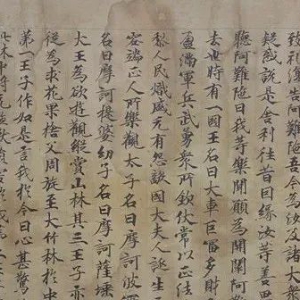 致礼復告阿難陀吾今為汝及諸大
疑惑說是舍利往昔因緣汝等善思
聽阿難陀曰我等樂聞願為開闡阿難
去世時有一國王名曰大車巨富多財
盈滿軍兵武勇衆所欽伏常以正法
黎人民熾盛无有怨敵國大夫人誕生三
容端正人所樂觀太子名曰摩訶波羅
名曰摩訶提婆幼子名曰摩訶薩埵
大王為欲遊觀縱賞山林其三王子亦
從為求花果捨父周旋至大竹林於中
第一王子作如是言我於今日心甚驚
此林中將無猛獸損害於